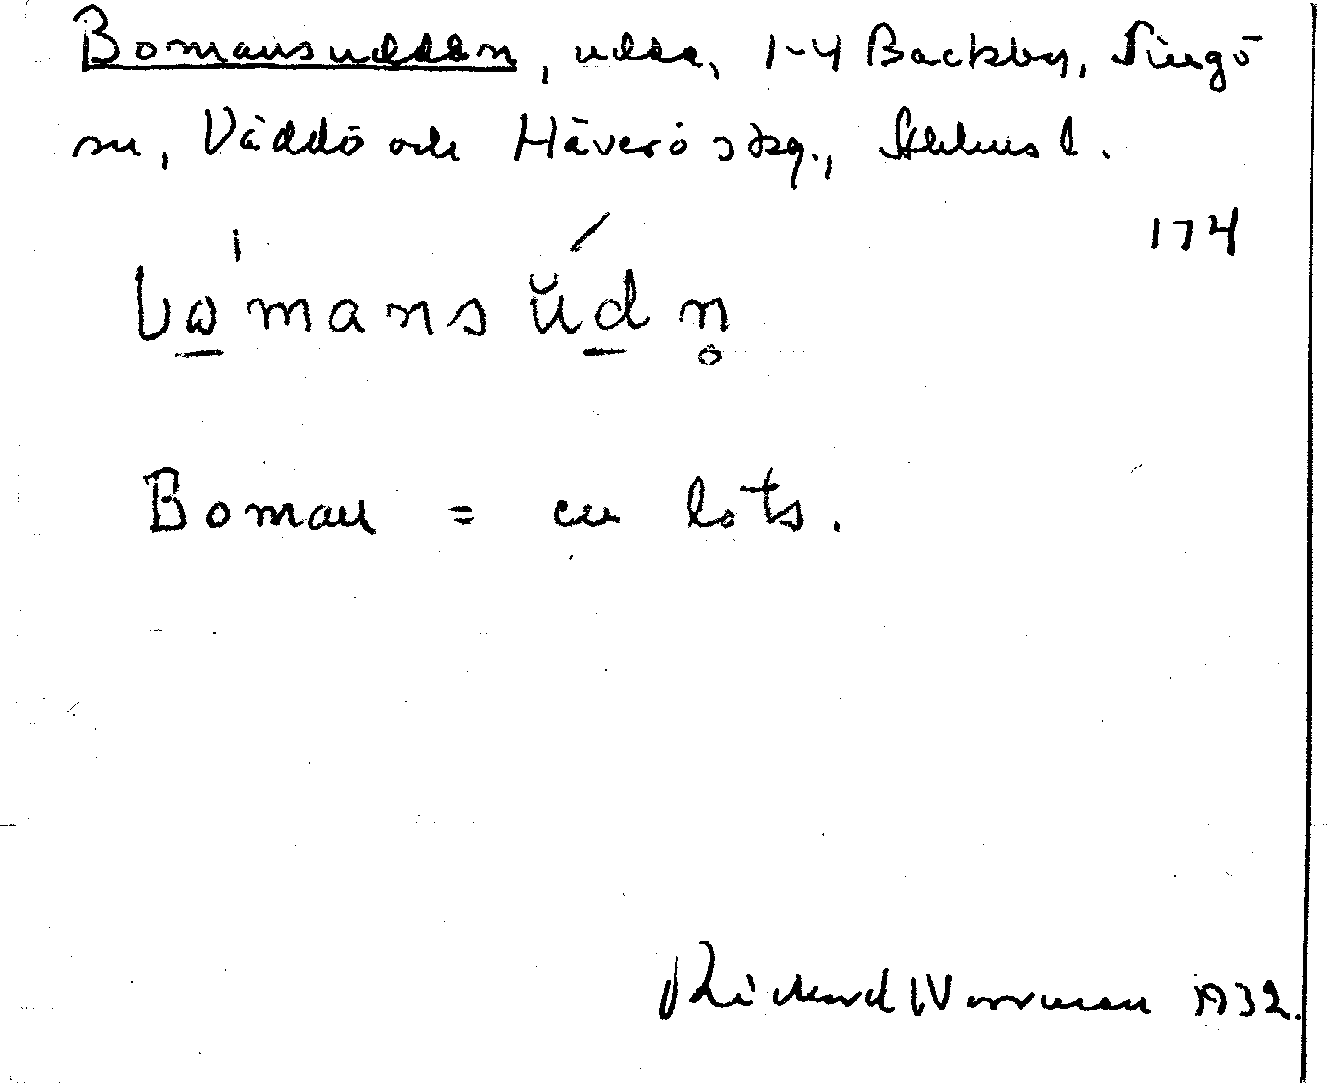 Bomansudden, udde, 1-4 Backby, Singö
sn, Väddö och Häverö skg., Sthlms l.
174
bω̲mansŭd̲n̥
Boman = en lots.
Rickard Worrman 1932.